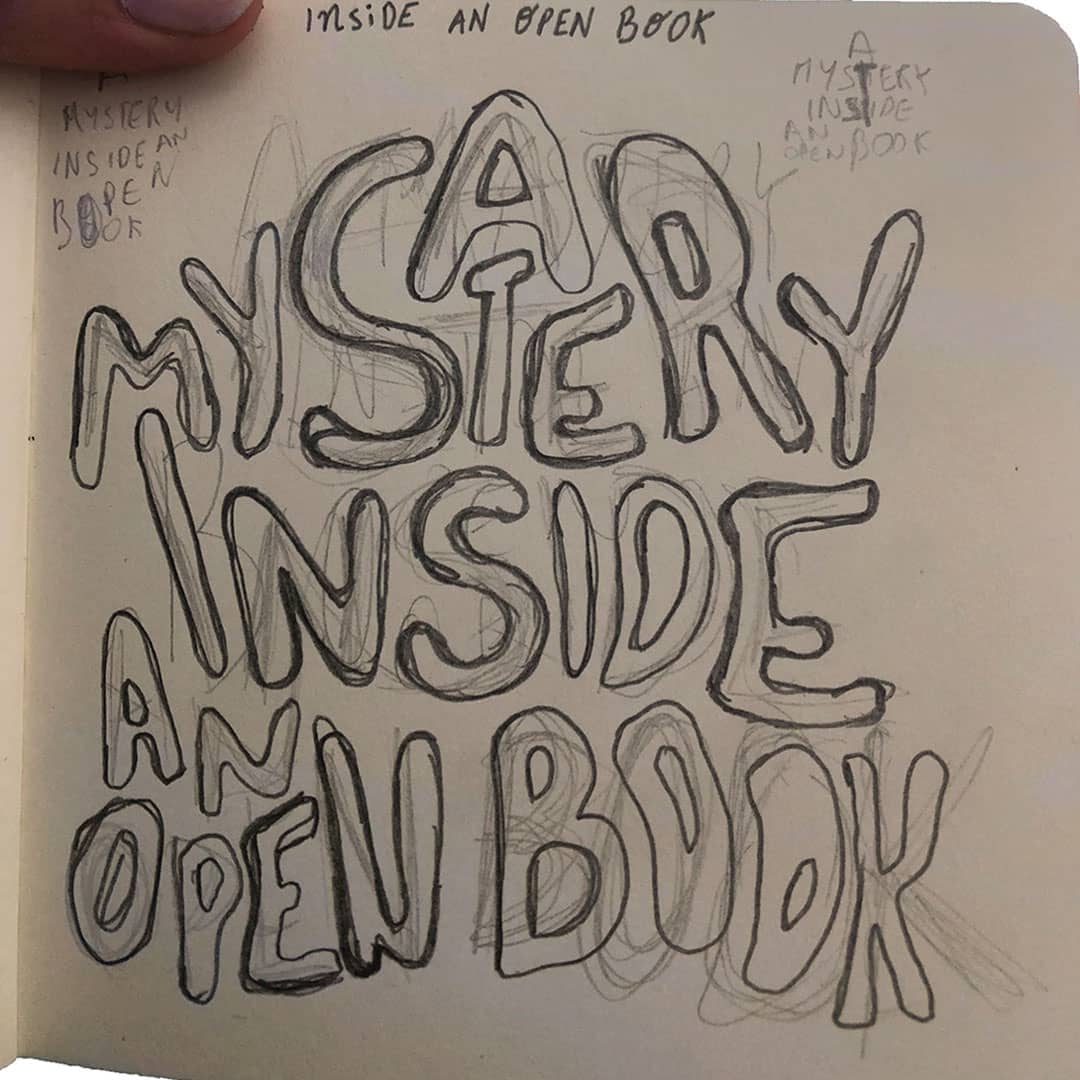 INSIDE AN OPEN BOOK
A
MYSTERY
INSIDE AN
OPEN
BOOK
A
MYSTERY
INSIDE
AN
OPEN BOOK
A
MYSTERY
INSIDE
AN
OPEN BOOK